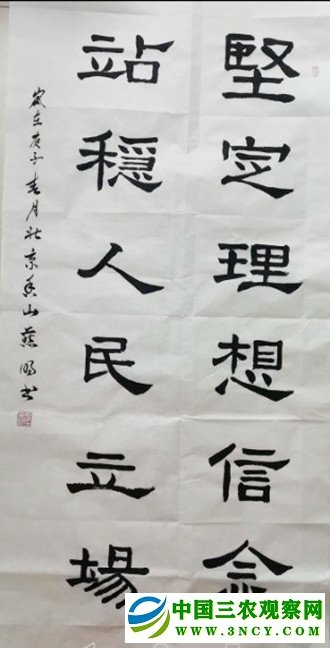 堅定理想信念
站穩人民立場
歲在庚子春月北京香山燕鳴書
中国三农观察网
WWW.3NCY.COM